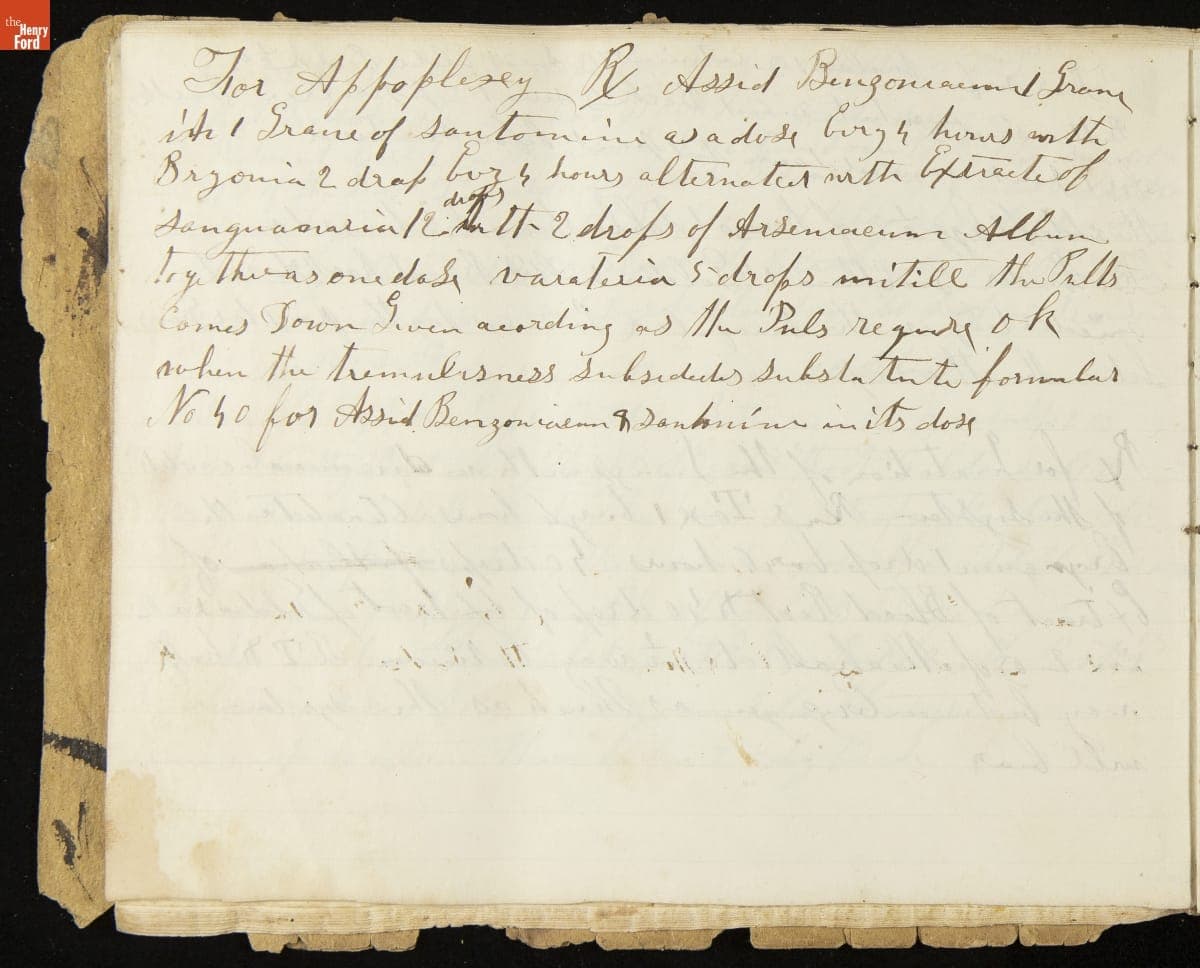 the
Henry
Ford
For Appoplexey ℞ Assid Benzoniacum 1 Grane
1 Grane of santonine as a dose Evry 4 hours with
Bryonia 2 drop Evry 4 hours alternated with Extracte of
drops
sanguanaria 12 with 2 drops of Arseniacum Album
together as one dose varateria 5 drops untill the Pulls
Comes Down Given acording as the Puls require ok
when the tremulisness subsideds substatute formular
No 40 for Assid Benzoniacum & santonine in its dose